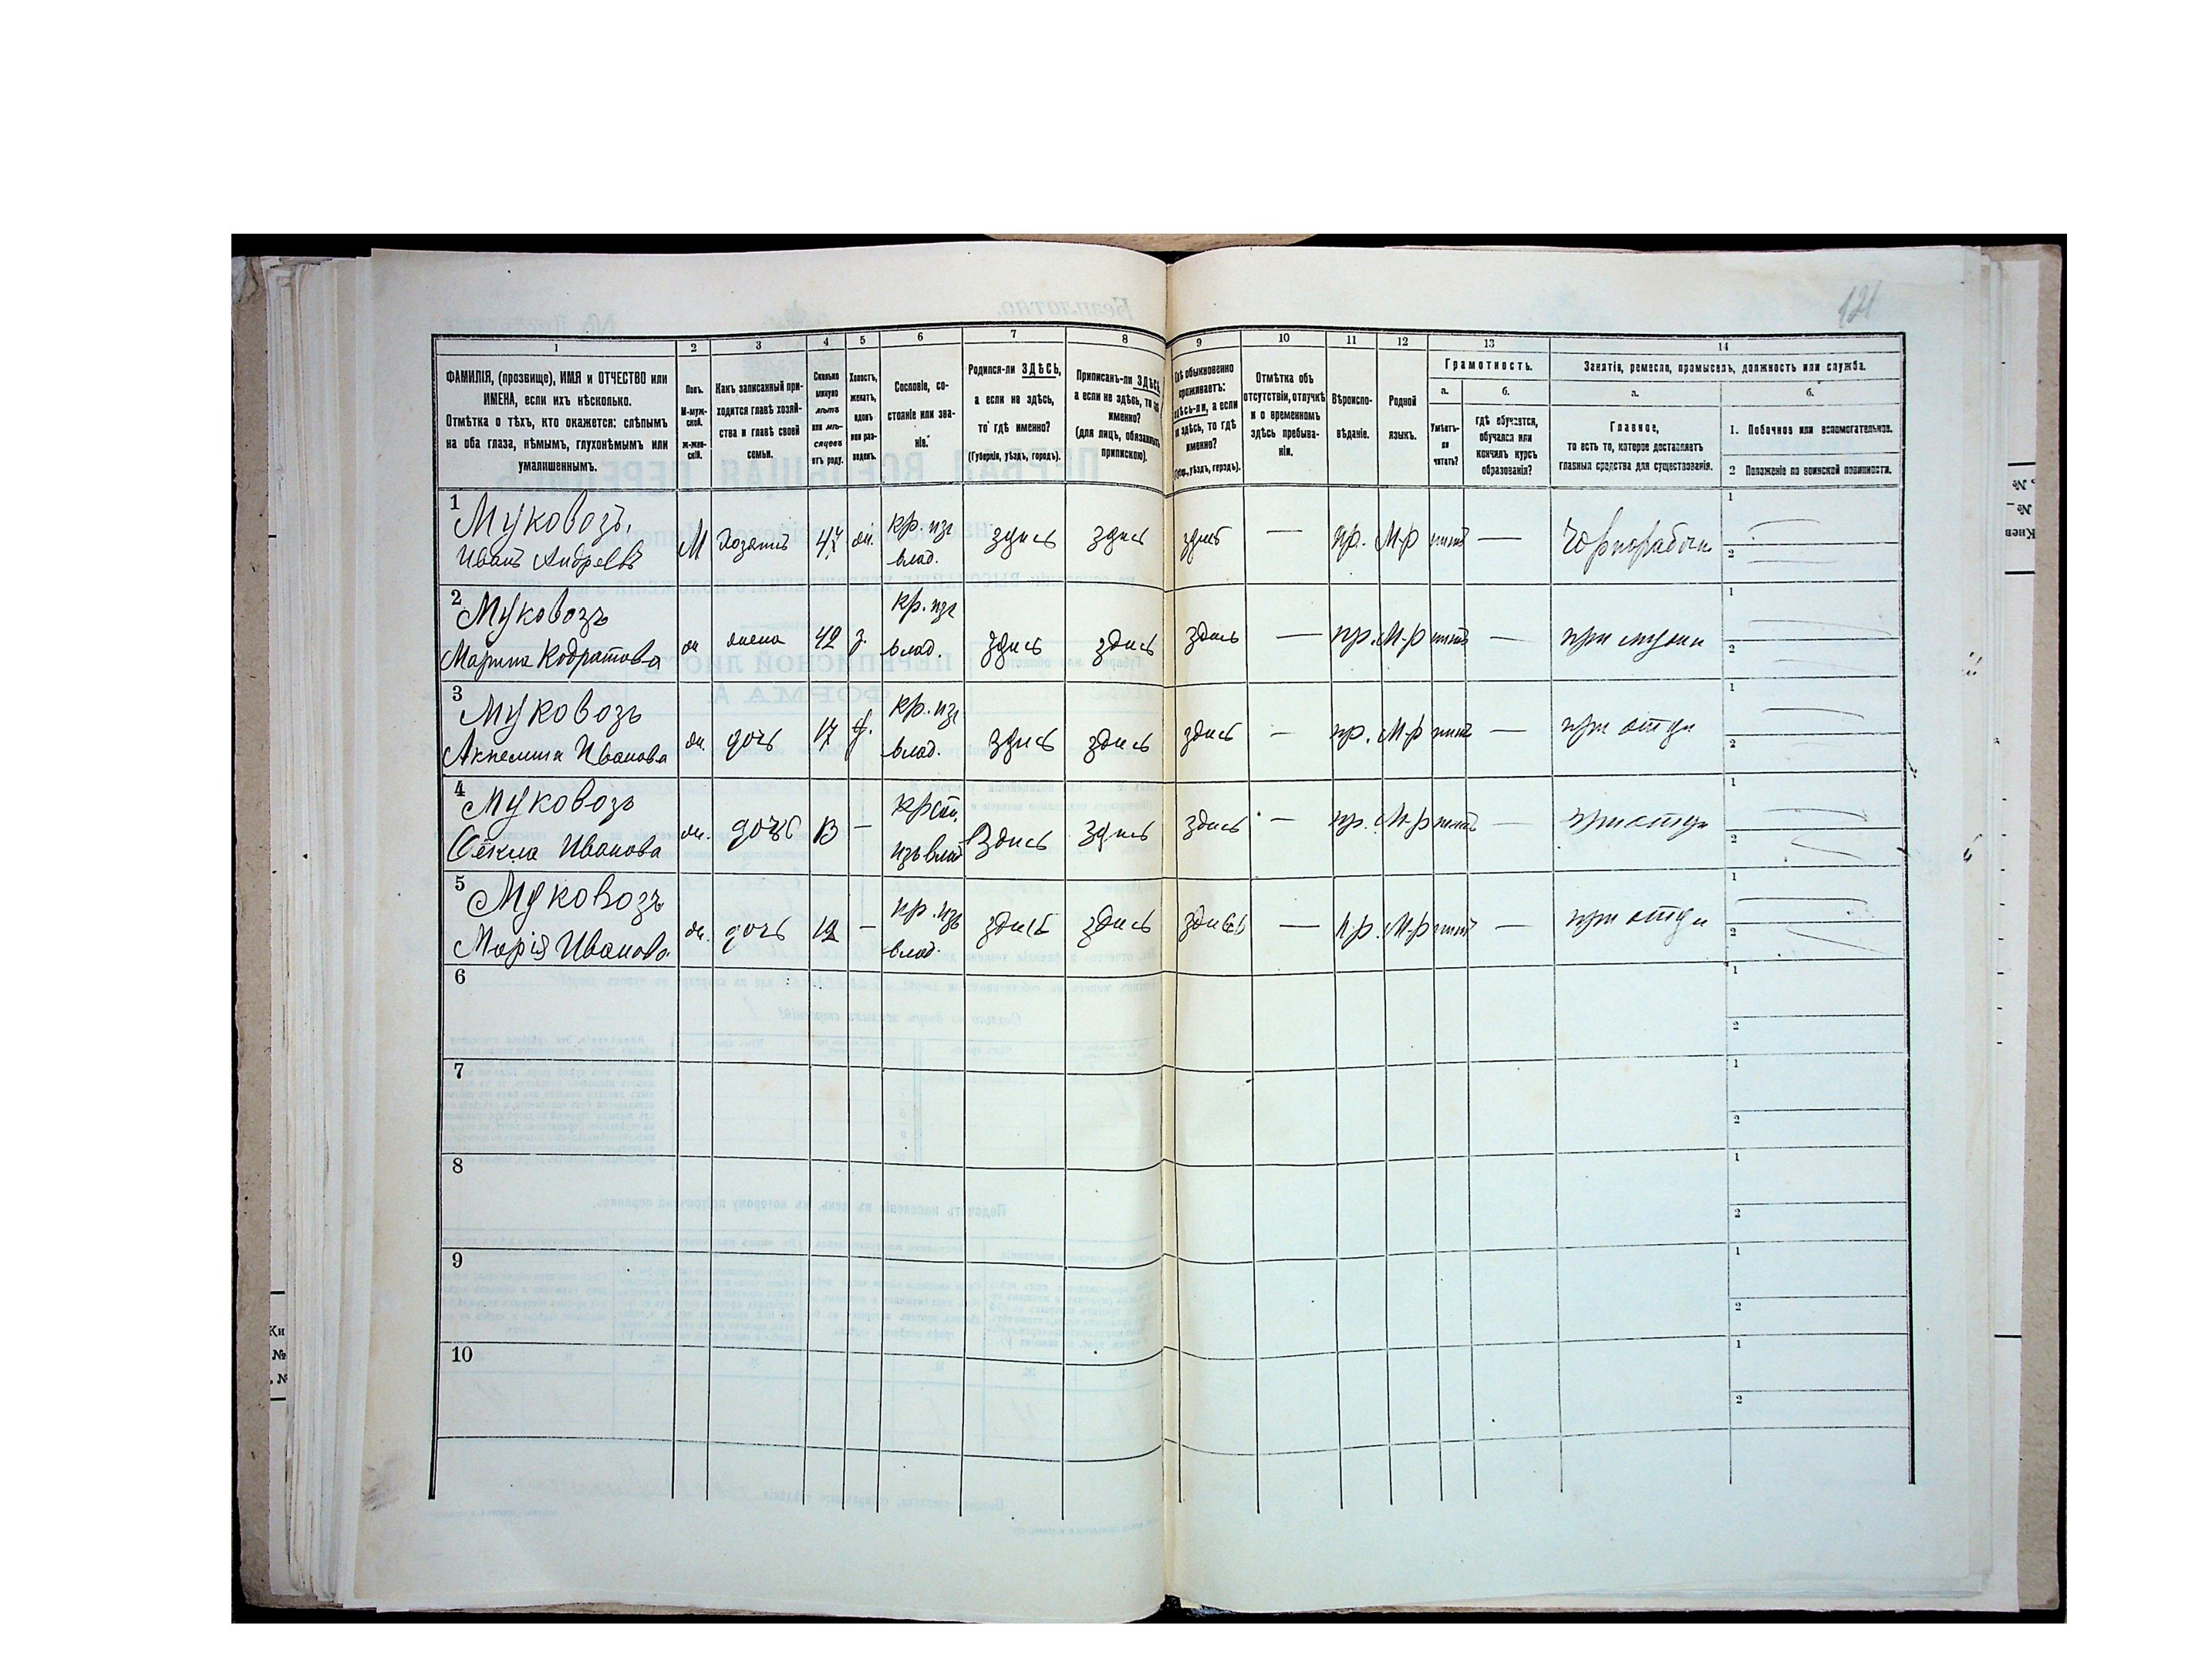 121
1 2 3 4 5 6 7 8 9 10 11 12 13 14
ФАМИЛІЯ, (прозвище), ИМЯ и ОТЧЕСТВО или
ИМЕНА, если ихъ нѣсколько.
Отмѣтка о тѣхъ, кто окажется: слѣпымъ
на оба глаза, нѣмымъ, глухонѣмымъ или
умалишеннымъ.
Полъ.
М-муж-
ской.
ж-жен-
скій.
Какъ записанный при-
ходится главѣ хозяй-
ства и главѣ своей
семьи.
Сколько
минуло
лѣтъ
или мѣ-
сяцевъ
отъ роду.
Холостъ,
женатъ,
вдовъ
или раз-
веденъ.
Сословіе, со-
стояніе или зва-
ніе.
Родился-ли ЗДѢСЬ,
а если не здѣсь,
то гдѣ именно?
(Губернія, уѣздъ, городъ).
Приписанъ-ли ЗДѢСЬ
а если не здѣсь, то гдѣ
именно?
(для лицъ, обязанныхъ
припискою).
Гдѣ обыкновенно
проживаетъ:
здѣсь-ли, а если
не здѣсь, то гдѣ
именно?
(Губер., уѣздъ, городъ).
Отмѣтка объ
отсутствіи, отлучкѣ
и о временномъ
здѣсь пребыва-
ніи.
Вѣроиспо-
вѣданіе.
Родной
языкъ.
Грамотность.
а. б.
Умѣетъ-
ли
читать?
гдѣ обучается,
обучался или
кончилъ курсъ
образованія?
Занятіе, ремесло, промыселъ, должность или служба.
а. б.
Главное,
то есть то, которое доставляетъ
главныя средства для существованія.
1. Побочное или вспомогательное.
2 Положеніе по воинской повинности.
1 Муковозъ, кр. изъ 1
Иванъ Андреевъ М хозяинъ 44 ж. влад. здѣсь здѣсь здѣсь — пр. М-р нѣтъ — Чорнорабочи 2
2 Муковозъ кр. изъ 1
Марина Кодратова ж жена 42 з. влад. здѣсь здѣсь здѣсь — пр. М-р нѣтъ — при мужи 2
3 Муковозъ кр. изъ 1
Акпелина Иванова ж. дочь 17 д. влад. здѣсь здѣсь здѣсь — пр. М-р нѣтъ — при отци 2
4 Муковозъ крст. 1
Ѳекла Иванова ж. дочь 13 — изъ влад здѣсь здѣсь здѣсь — пр. М-р нѣтъ — при отци 2
5 Муковозъ кр. изъ 1
Марія Иванова ж. дочь 12 — влад. здѣсь здѣсь здѣсь — пр. М-р нѣтъ — при отци 2
6 1
2
7 1
2
8 1
2
9 1
2
10 1
2